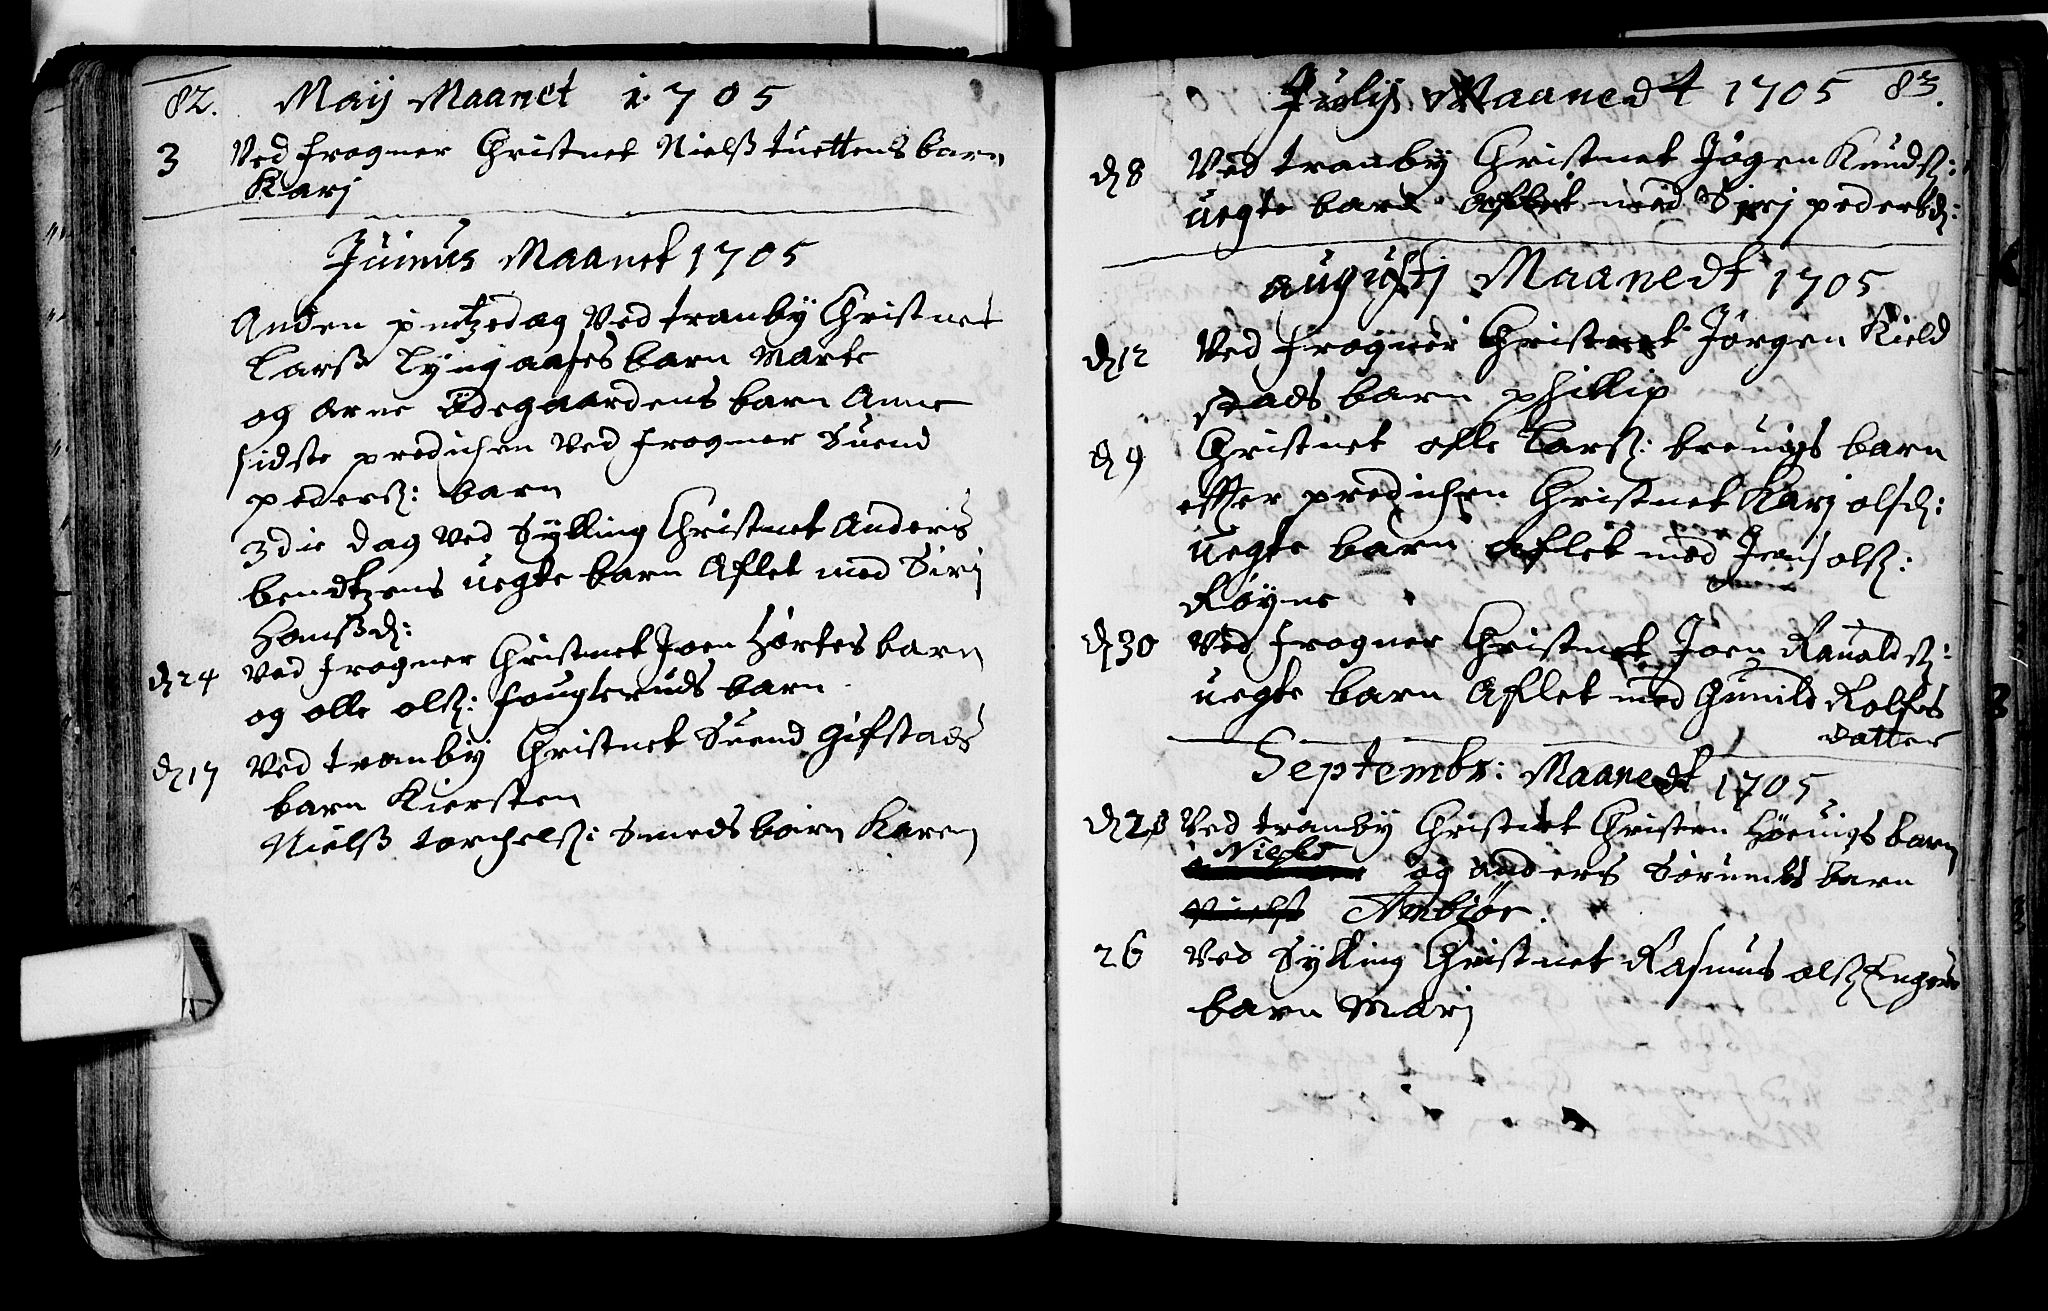 82. Maij Maanet 1705
3 Ved frogner Christnet Nielß tuettens barn
Karj
Junius Maanet 1705
Anden pintzedag Ved tranby Christnet
Larß Lyngaases barn Marte
og Arne Ødegaardens barn Anne
sidste predichen Ved frogner Suend
pederß: barn
3die dag Ved Sylling Christnet Anders
bendtzens uegte barn Aflet med Sirj
Hansd:
d 24 Ved frogner Christnet Joen Hørtes barn
og olle olß: fougleruds barn
d 17 Ved tranby Christnet Suend Gifstads
barn Kiersten
Nielß torchelß: Smeds barn Karen
Julij Maanedt 1705 83.
d 8 Ved tranby Christnet Jøgen Knudß:
uegte barn Aflet med Sirj pedersd:
augustj Maanedt 1705
d 12 Ved frogner Christnet Jørgen Kield
stads barn phillip
d 9 Christnet olle Larß: breuigs barn
effter predichen Christnet Karj olsd:
uegte barn aflet med Jens olß:
Røyne
d 30 Ved frogner Christnet Joen Rauoldß:
uegte barn Aflet med Gunild Rolfs
datter
Septembr: Maanedt 1705
d 28 Ved tranby Christnet Christen Høeuigs barn
Niels
og anders Sørumbs barn
Nielß Anbiør.
26 Ved Sylling Christnet Rasmus olß Engers
barn Marj